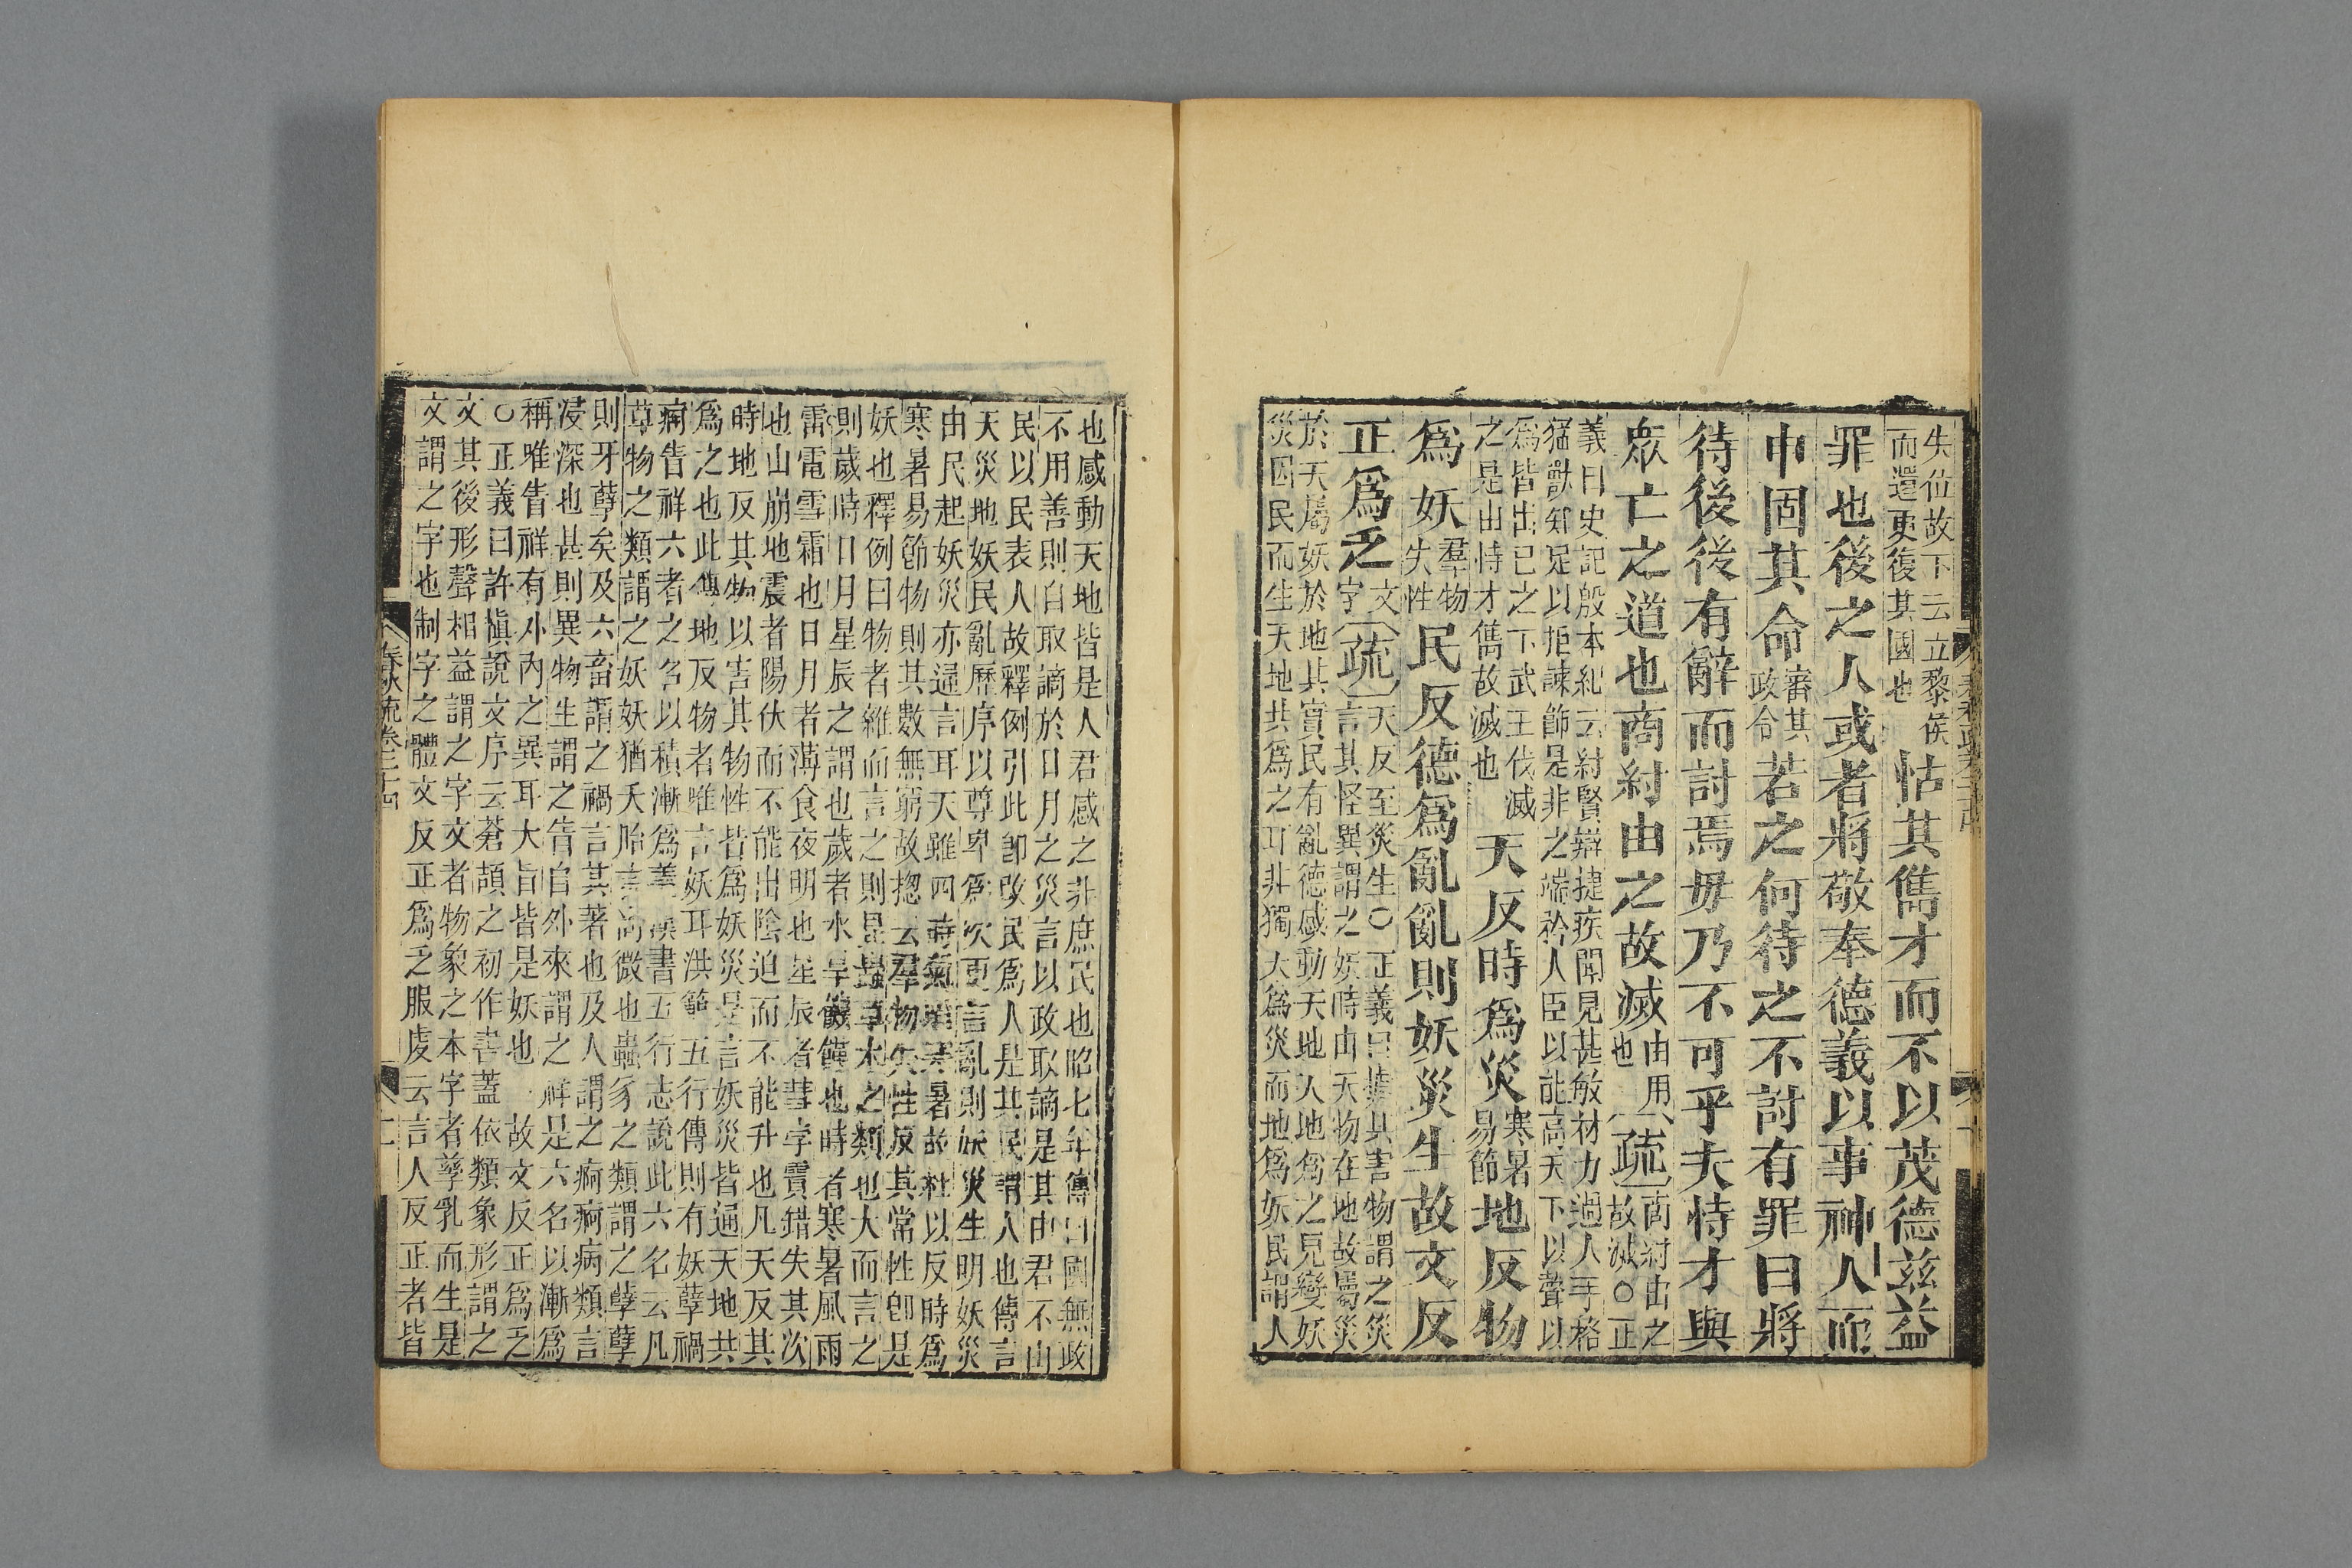 失位故下云立黎侯
而還更復其國也
怙其儁才而不以茂德茲益
罪也後之人或者將敬奉德義以事神人而
申固其命
審其
政令
若之何待之不討有罪曰將
待後後有辭而討焉毋乃不可乎夫恃才與
眾亡之道也商紂由之故滅
由用
也
疏
商紂由之
故滅○正
義曰史記殷本紀云紂賢辯捷疾聞見甚敏材力過人手格
猛獸知足以拒諫飾是非之端矜人臣以能高天下以聲以
為皆出己之下武王伐滅
之是由恃才儁故滅也
天反時為災
寒暑
易節
地反物
為妖
羣物
失性
民反德為亂亂則妖災生故文反
正為乏
文
字
疏
天反至災生○正義曰據其害物謂之災
言其怪異謂之妖時由天物在地故屬災
於天屬妖於地其實民有亂德感動天地天地為之見變妖
災因民而生天地共為之耳非獨天為災而地為妖民謂人
也感動天地皆是人君感之非庶民也昭七年傳曰國無政
不用善則自取謫於日月之災言以政取謫是其由君不由
民以民表人故釋例引此即改民為人是其民謂人也傳言
天災地妖民亂歷序以尊卑為次更言亂則妖災生明妖災
由民起妖災亦通言耳天雖四時氣唯寒暑故杜以反時為
寒暑易節物則其數無窮故揔云羣物失性反其常性即是
妖也釋例曰物者雜而言之則昆蟲草木之類也大而言之
則歲時日月星辰之謂也歲者水旱饑饉也時者寒暑風雨
雷電雪霜也日月者薄食夜明也星辰者彗孛霣錯失其次
也山崩地震者陽伏而不能出陰迫而不能升也凡天反其
時地反其物以害其物性皆為妖災是言妖災皆通天地共
為之也此傳地反物者唯言妖耳洪範五行傳則有妖孽禍
痾眚祥六者之名以積漸為義漢書五行志說此六名云凡
草物之類謂之妖妖猶夭胎言尚微也蟲豸之類謂之孽孽
則牙孽矣及六畜謂之禍言其著也及人謂之痾痾病類言
浸深也甚則異物生謂之眚自外來謂之祥是六名以漸為
稱唯眚祥有外內之異耳大旨皆是妖也 故文反正為乏
○正義曰許慎說文序云蒼頡之初作書蓋依類象形謂之
文其後形聲相益謂之字文者物象之本字者孳乳而生是
文謂之字也制字之體文反正為乏服虔云言人反正者皆
春秋疏卷二十四